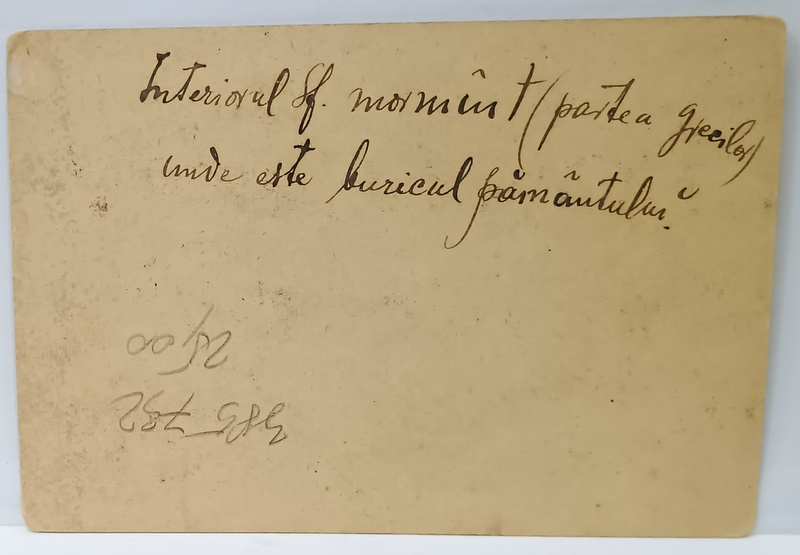 Interiorul Sf. mormînt (partea grecilor)
unde este buricul pămân̂tuluĭ.
25,00
385 732